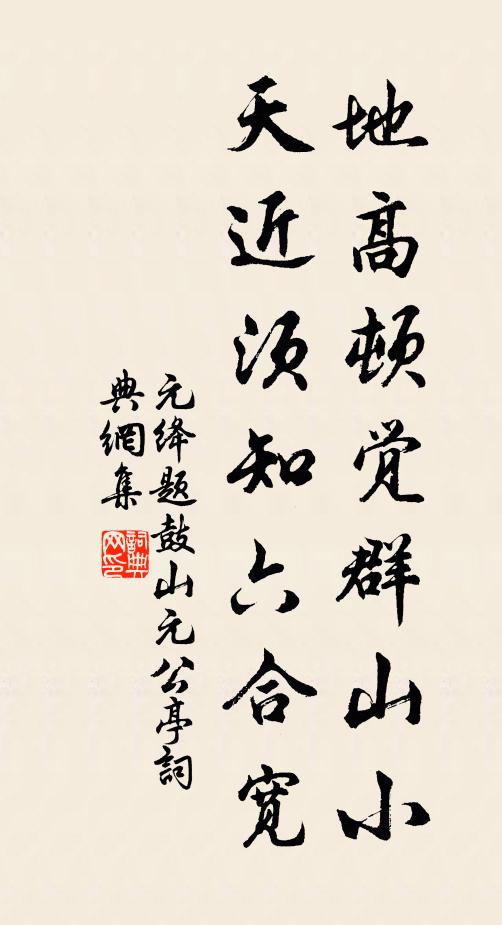 地高顿觉群山小
天近须知六合寬
元绛题鼓山元公亭詞
典網集
詞典
网印